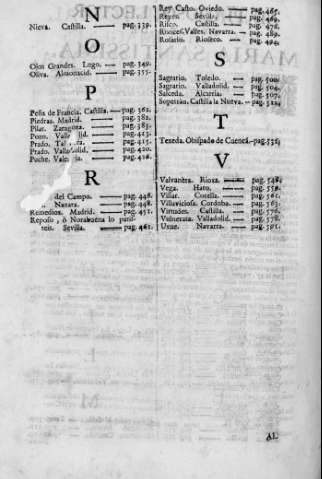 N
Nieva. Castilla. pag. 539.
O
Ojos Grandes. Lugo. pag. 549.
Oliva. Almonacid. pag. 355.
P
Peña de Francia. Castilla. pag. 362.
Piedras. Madrid. pag. 382.
Pilar. Zaragoza. pag. 385.
pag. 413.
Prado. pag. 415.
Prado. Valladolid. pag. 420.
Puche. pag. 426.
R
del Campo. pag. 448.
Navara. pag. 448.
Remedios. Madrid. pag. 451.
Reposo, ò Norabuena lo
Sevilla. pag. 461.
Rey Casto. Oviedo. pag. 465.
Reyes. Sevilla. pag. 469.
Risco. Castilla. pag. 472.
Navarra. pag. 482.
Rosario. Rioseco. pag.
S
Sagrario. Toledo. pag. 500.
Sagrario. Valladolid. pag. 504.
Salceda. Alcarria. pag. 507.
Sopetràn. Castilla la Nueva. pag.
T
Texeda. Obispado de Cuenca. pag. 535.
V
Valvanera. Rioxa. pag. 548.
Vega. Haro. pag. 559.
Villar. Corella. pag. 561.
Villaviciosa. Cordoba. pag. 563.
Virtudes. Castilla. pag. 576.
Vulnerata. Valladolid. pag. 578.
Uxue. Navarra. pag. 581.
AL